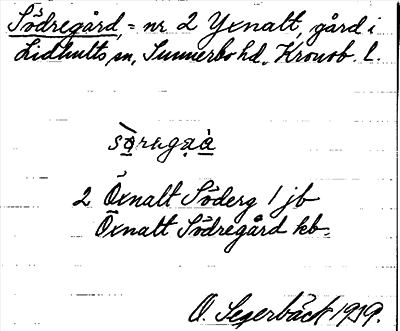 Södregård, = nr 2 Yxnalt, gård i
Lidhults sn, Sunnerbo hd, Kronob. l.
2 Öxnalt Söderg 1 jb
Öxnalt Södregård kb.
O. Segerbäck 1919.